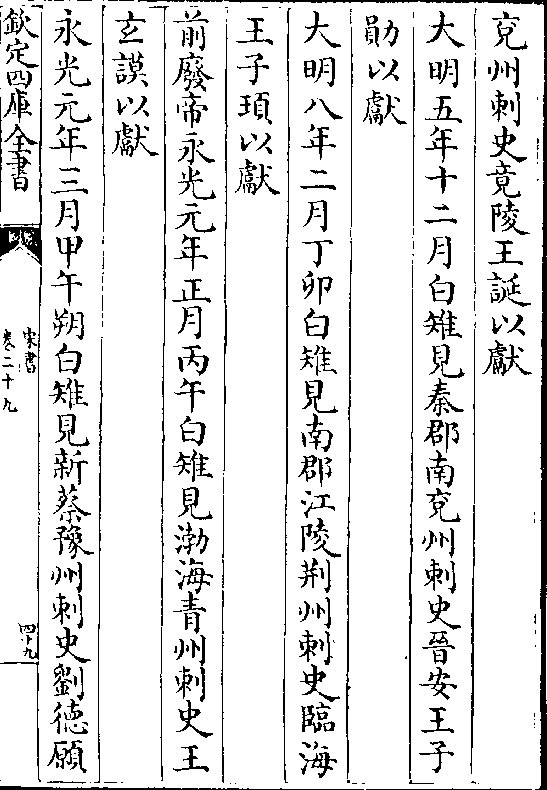 兗州刺史竟陵王誕以獻
大明五年十二月白雉見秦郡南兗州刺史晉安王子
勛以獻
大明八年二月丁卯白雉見南郡江陵荆州刺史臨海
王子頊以獻
前廢帝永光元年正月丙午白雉見渤海青州刺史王
玄謨以獻
永光元年三月甲午朔白雉見新蔡豫州刺史劉德願
欽定四庫全書
宋書
卷二十九
四十九